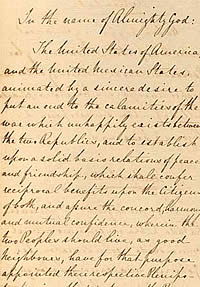 In the name of Almighty God:
The United States of America
and the United Mexican States,
animated by a sincere desire to
put an end to the calamities of the
war which unhappily exists between
the two Republics, and to establish
upon a solid basis relations of peace
and friendship, which shall confer
reciprocal benefits upon the Citizens
of both, and assure the concord, harmony
and mutual confidence, wherein the
two Peoples should live, as good
Neighbours, have for that purpose
appointed their respective Plenipo-